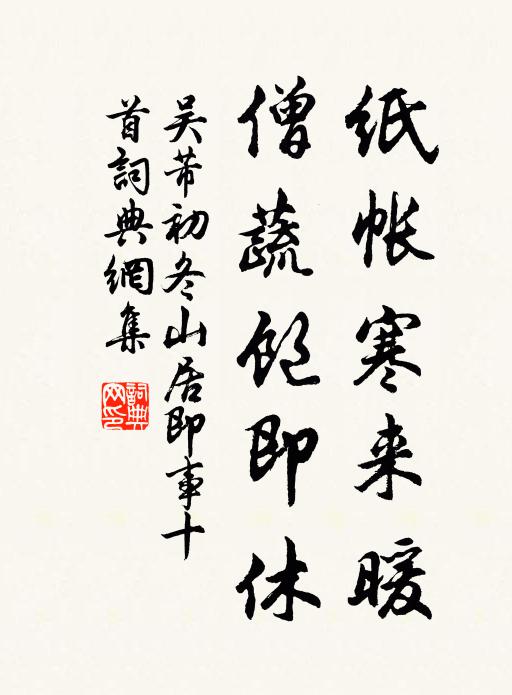 紙帳寒来暖
僧蔬飽即休
吴芾初冬山居即事十
首詞典網集
詞典
网印